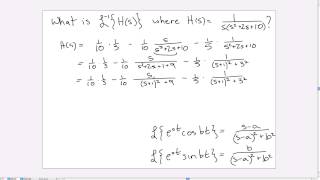 What is ℒ⁻¹{H(s)} where H(s) = 1/(s(s²+2s+10))?
H(s) = 1/10 · 1/s - 1/10 · s/(s²+2s+10) - 1/5 · 1/(s²+2s+10)
= 1/10 · 1/s - 1/10 · s/(s²+2s+1+9) - 1/5 · 1/((s+1)²+3²)
= 1/10 · 1/s - 1/10 · s/((s+1)²+3²) - 1/5 · 1/((s+1)²+3²)
ℒ{e^{at} cos bt} = (s-a)/((s-a)²+b²)
ℒ{e^{at} sin bt} = b/((s-a)²+b²)